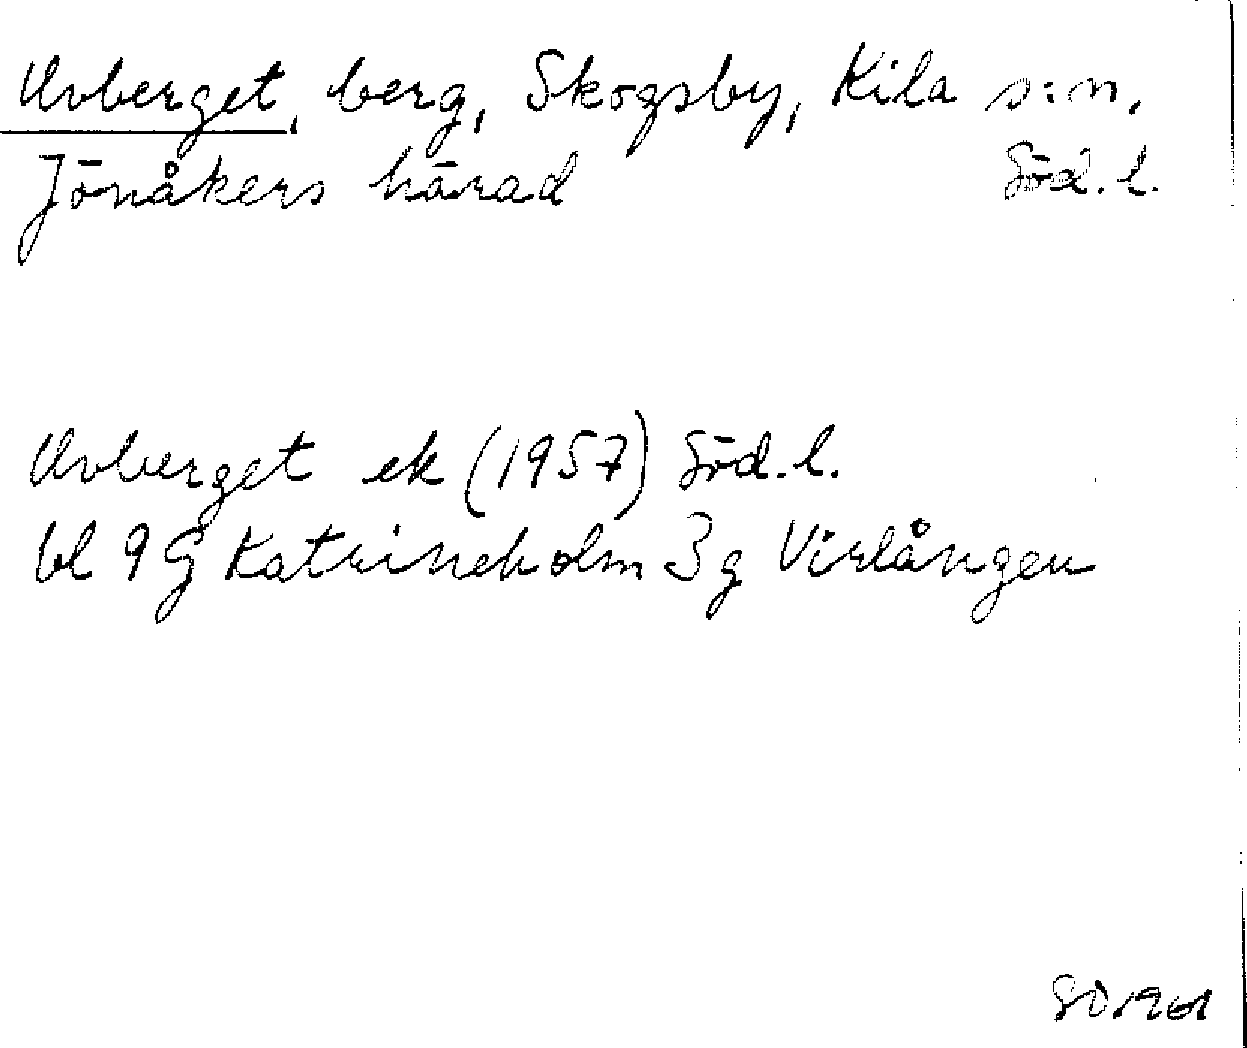 Uvberget, berg, Skogsby, Kila s:n,
Jönåkers härad Söd. l.
Uvberget ek (1957) Söd. l.
bl 9 G Katrineholm 3 g Virlången
1961